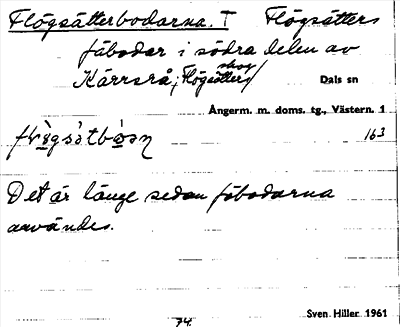 Flögsätterbodarna. T Flögsätters
fäbodar i södra delen av
skog
Kärrsrå, Flögsätters/ Dals sn
Ångerm. m. doms. tg., Västern. 1
163
Det är länge sedan fäbodarna
användes.
74. Sven Hiller 1961